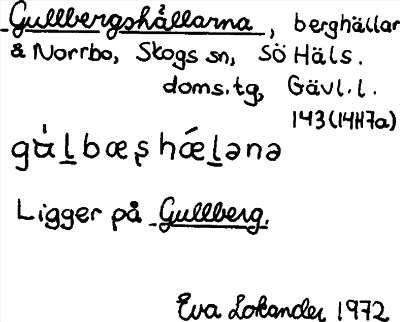 Gullbergshällarna, berghällar
å Norrbo, Skogs sn, SöHäls.
doms.tg, Gävl.l.
143(14H7a)
gɑ̀ḻbæʂhǽḻənə
Ligger på Gullberg.
Eva Lokander 1972